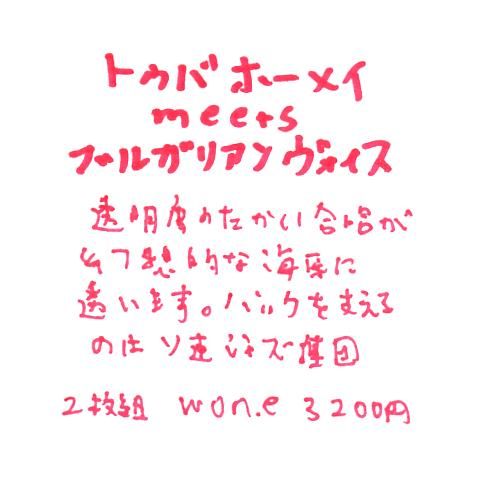 トゥバ ホーメイ
meets
ブルガリアン ヴォイス
透明度のたかい合唱が
幻想的な海原に
誘います。バックを支える
のはソ連ジャズ集団
2枚組 won.e 3200円